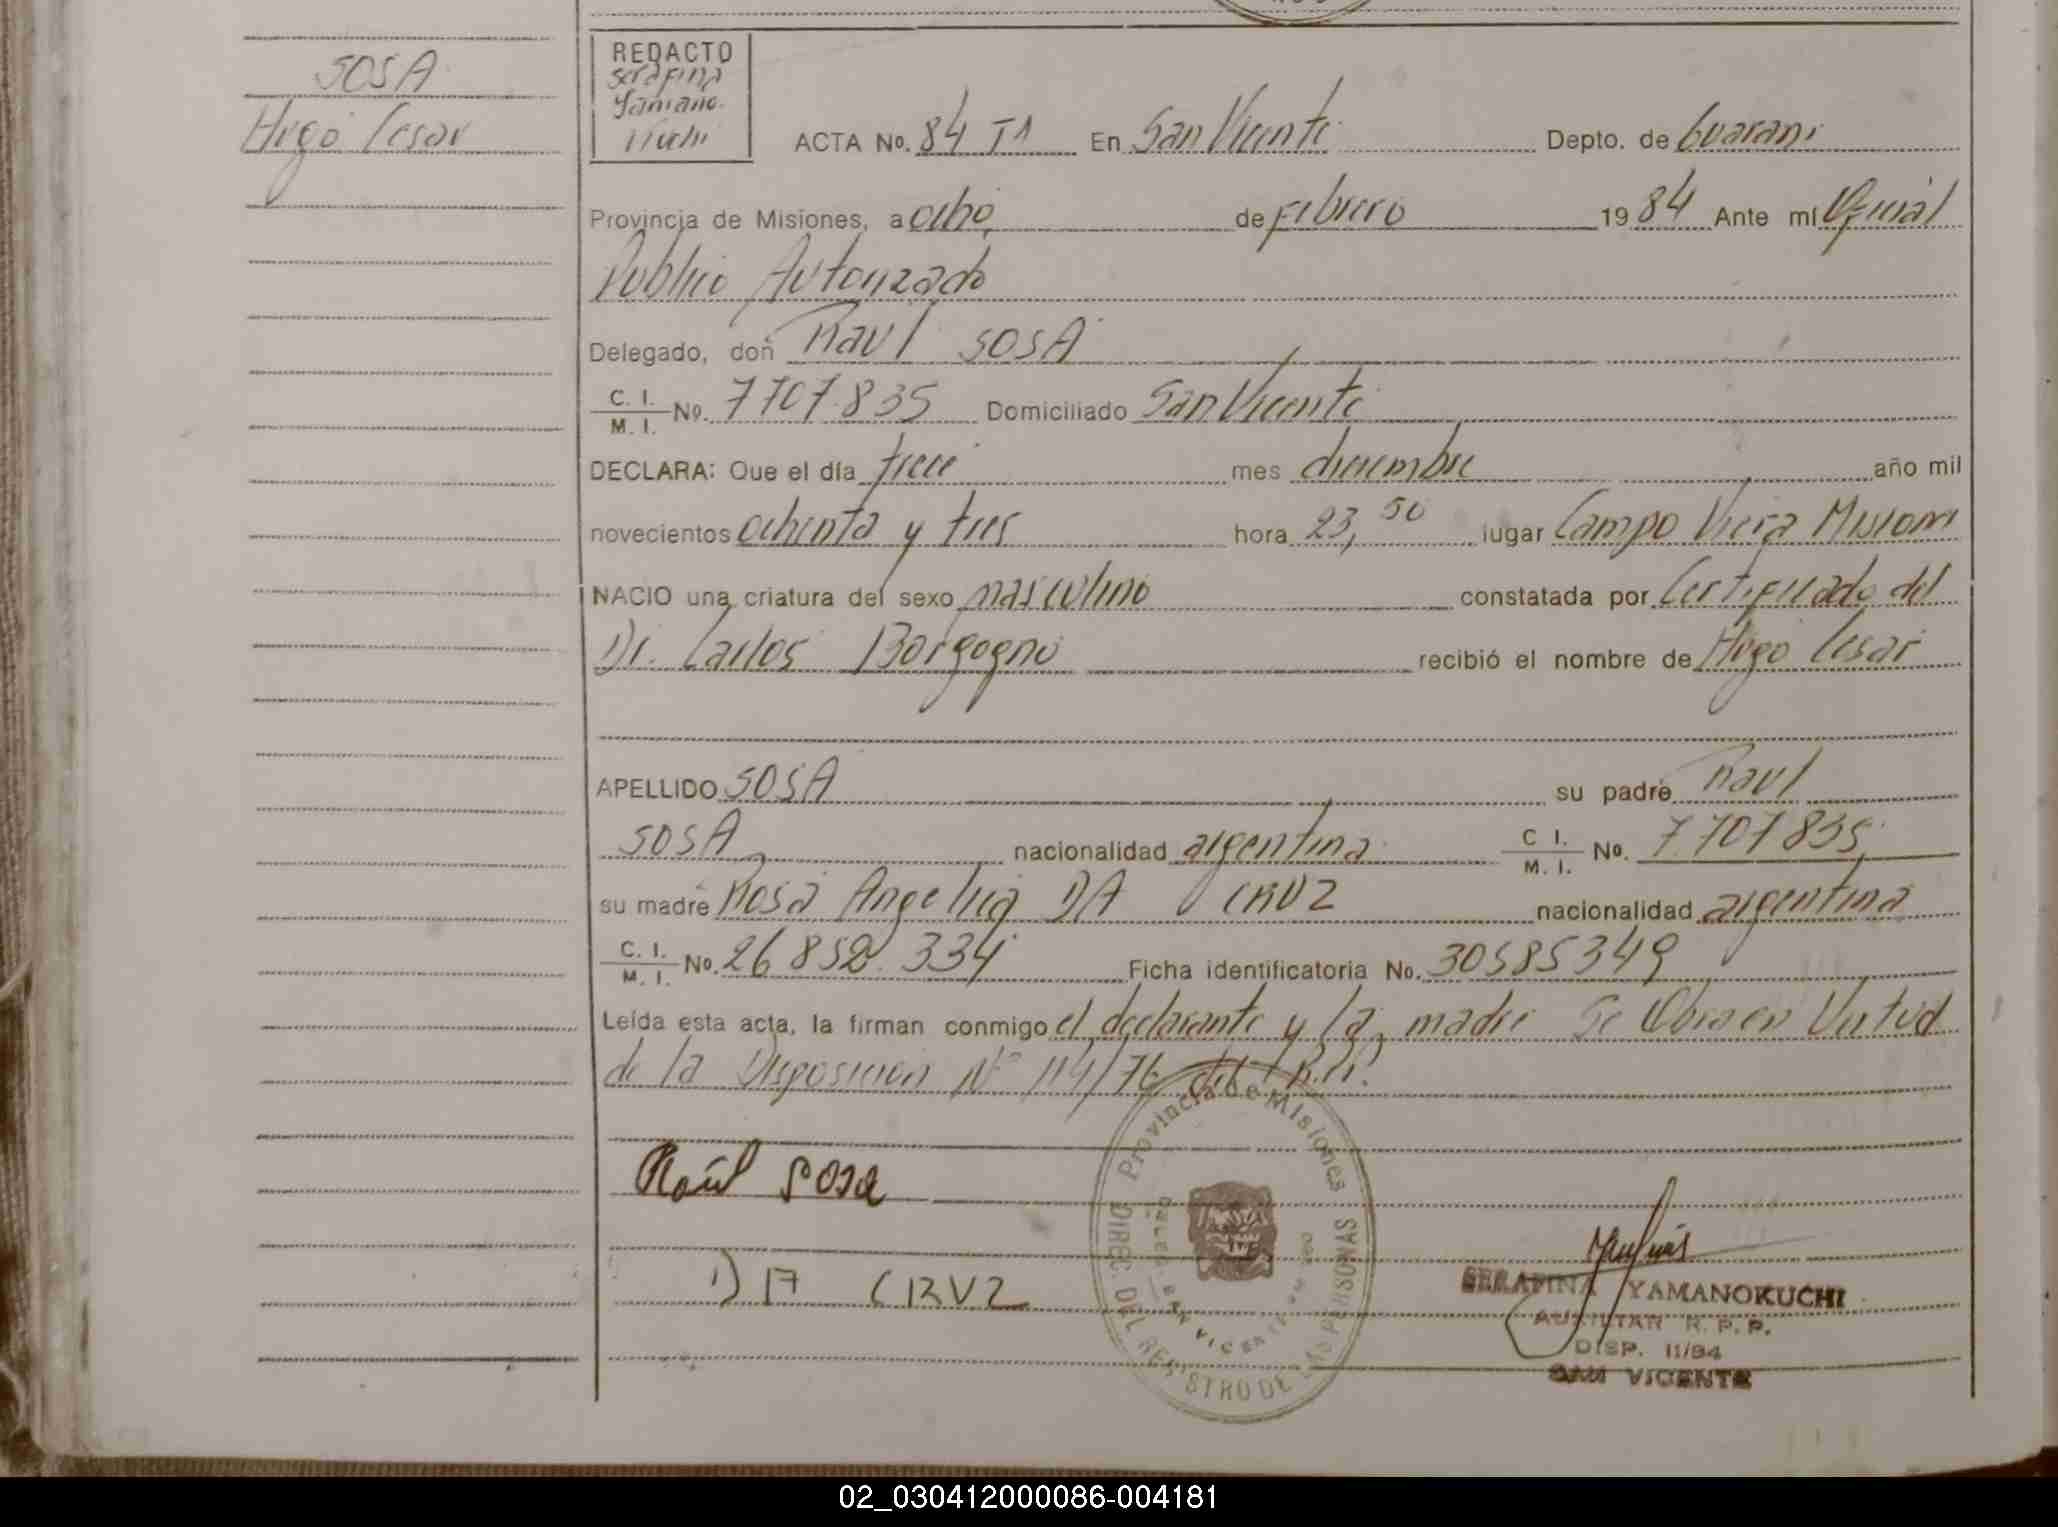 SOSA
Hugo Cesar
REDACTO
Serafina
Yamano-
Kuchi
ACTA No. 84 T1 En San Vicente Depto. de Guarani
Provincia de Misiones, a ocho de Febrero 1984 Ante mí Oficial
Publico Autorizado
Delegado, don Raul SOSA
C. I.
M. I. No. 7707.835 Domiciliado San Vicente
DECLARA: Que el día trece mes diciembre año mil
novecientos ochenta y tres hora 23,50 lugar Campo Viera Misiones
NACIO una criatura del sexo masculino constatada por Certificado del
Dr. Carlos Borgogno recibió el nombre de Hugo Cesar
APELLIDO SOSA su padre Raul
SOSA nacionalidad argentina C I. M. I. No. 7.707835
su madre Rosa Angelica DA CRUZ nacionalidad argentina
C. I.
M. I. No. 26852.334 Ficha identificatoria No. 30585349
Leída esta acta, la firman conmigo el declarante y la madre Se labra en Virtud
de la Disposicion Nº 114/76 del R.P.
Provincia de Misiones
DIREC. DEL REGISTRO DE LAS PERSONAS
Raúl Sosa
DA CRUZ
SERAFINA YAMANOKUCHI
AUXILIAR R. P. P.
DISP. 11/84
SAN VICENTE
02_030412000086-004181